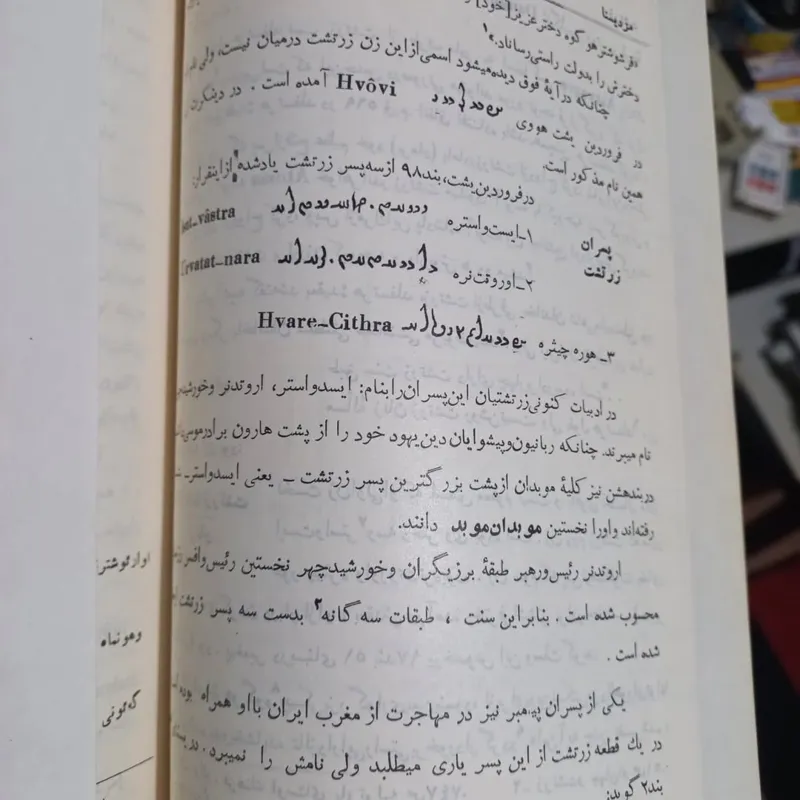 مزدیسنا
«فرشوشتر هو گوه دختر عزیز[خود] را
دخترش را بدولت راستی رساناد.»۱
چنانکه در آیهٔ فوق دیده میشود اسمی از این زن زرتشت در میان نیست، ولی
در فروردین یشت هووی Hvôvi آمده است . در دینکرد
همین نام مذکور است.
در فروردین یشت، بند ۹۸ از سه پسر زرتشت یاد شده از اینقرار:
پسران زرتشت
۱ـ ایست واستره vâstra
۲ـ اوروتت نره rvatat-nara
۳ـ هوره چیثره Hvare-Cithra
در ادبیات کنونی زرتشتیان این پسران را بنام: ایسدواستر، اروتدنر و خورشیدچهر
نام میبرند. چنانکه ربانیون و پیشوایان دین یهود خود را از پشت هارون برادر موسی
در بندهشن نیز کلیهٔ موبدان از پشت بزرگترین پسر زرتشت ـ یعنی ایسدواستر ـ
رفته‌اند و او را نخستین موبدان موبد دانند.
اروتدنر رئیس و رهبر طبقهٔ برزیگران و خورشیدچهر نخستین رئیس و افسر
محسوب شده است . بنابراین سنت ، طبقات سه گانه۲ بدست سه پسر زرتشت
شده است .
یکی از پسران پیمبر نیز در مهاجرت از مغرب ایران با او همراه بوده
در یك قطعه زرتشت از این پسر یاری میطلبد ولی نامش را نمیبرد. در
بند ۲ گوید:
وهو نماه
گه‌ئونی